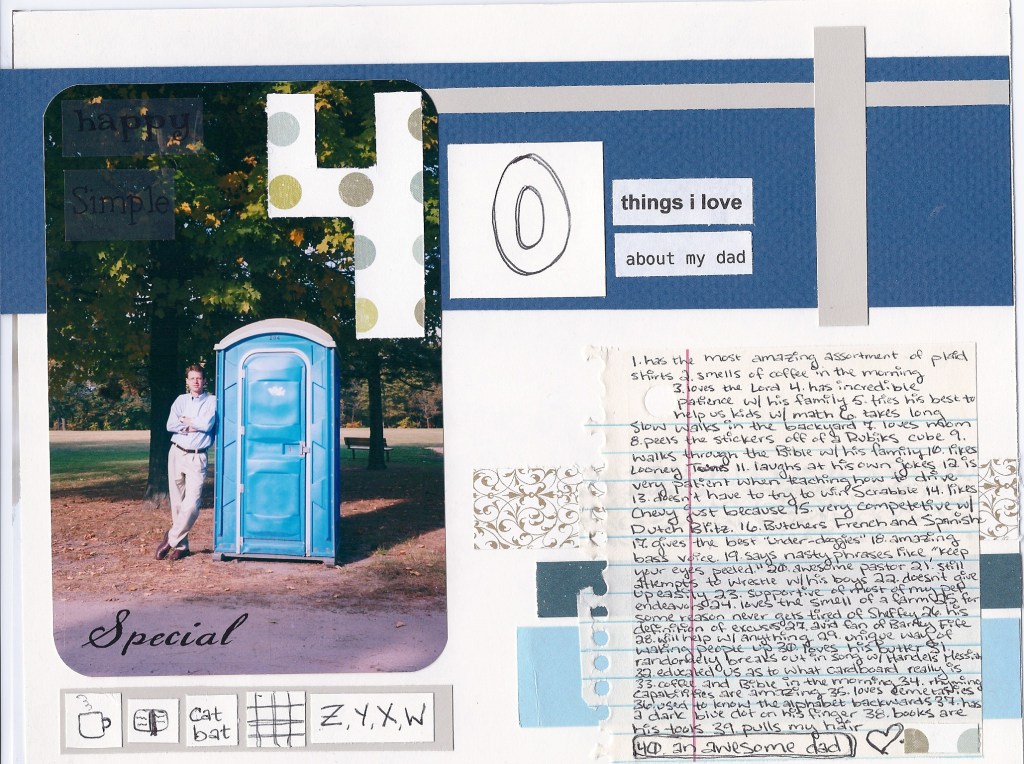 happy
Simple
40
things i love
about my dad
1. has the most amazing assortment of plaid
shirts 2. smells of coffee in the morning
3. loves the Lord 4. has incredible
patience w/ his family 5. tries his best to
help us kids w/ math 6. takes long
slow walks in the backyard 7. loves mom
8. peels the stickers off of a Rubiks cube 9.
walks through the Bible w/ his family 10. likes
Looney Toons 11. laughs at his own jokes 12. is
very patient when teaching how to drive
13. doesn't have to try to win Scrabble 14. likes
Chevy just because 15 very competitive w/
Dutch Blitz. 16. Butchers French and Spanish
17. gives the best "under-doggies" 18. amazing
bass voice. 19. says nasty phrases like, "keep
your eyes peeled" 20. awesome pastor 21. still
attempts to wrestle w/ his boys 22. doesn't give
up easily 23. supportive of most of my pet
endeavors 24. loves the smell of a farm 25. for
some reason never gets tired of Sheffey 26. his
definition of excuses 27. avid fan of Barney Fife
28. will help w/ anything 29. unique way of
waking people up 30. loves his butter 31.
randomly breaks out in song w/ Handel's Messiah
32. educated us as to what cardboard really is
33. coffee and Bible in the morning 34. rhyming
capabilities are amazing 35. loves
36. used to know the alphabet backwards 37. has
a dark blue dot on his finger 38. books are
his tools 39. pulls my hair
40. an awesome dad
Special
Cat
bat
Z, Y, X, W